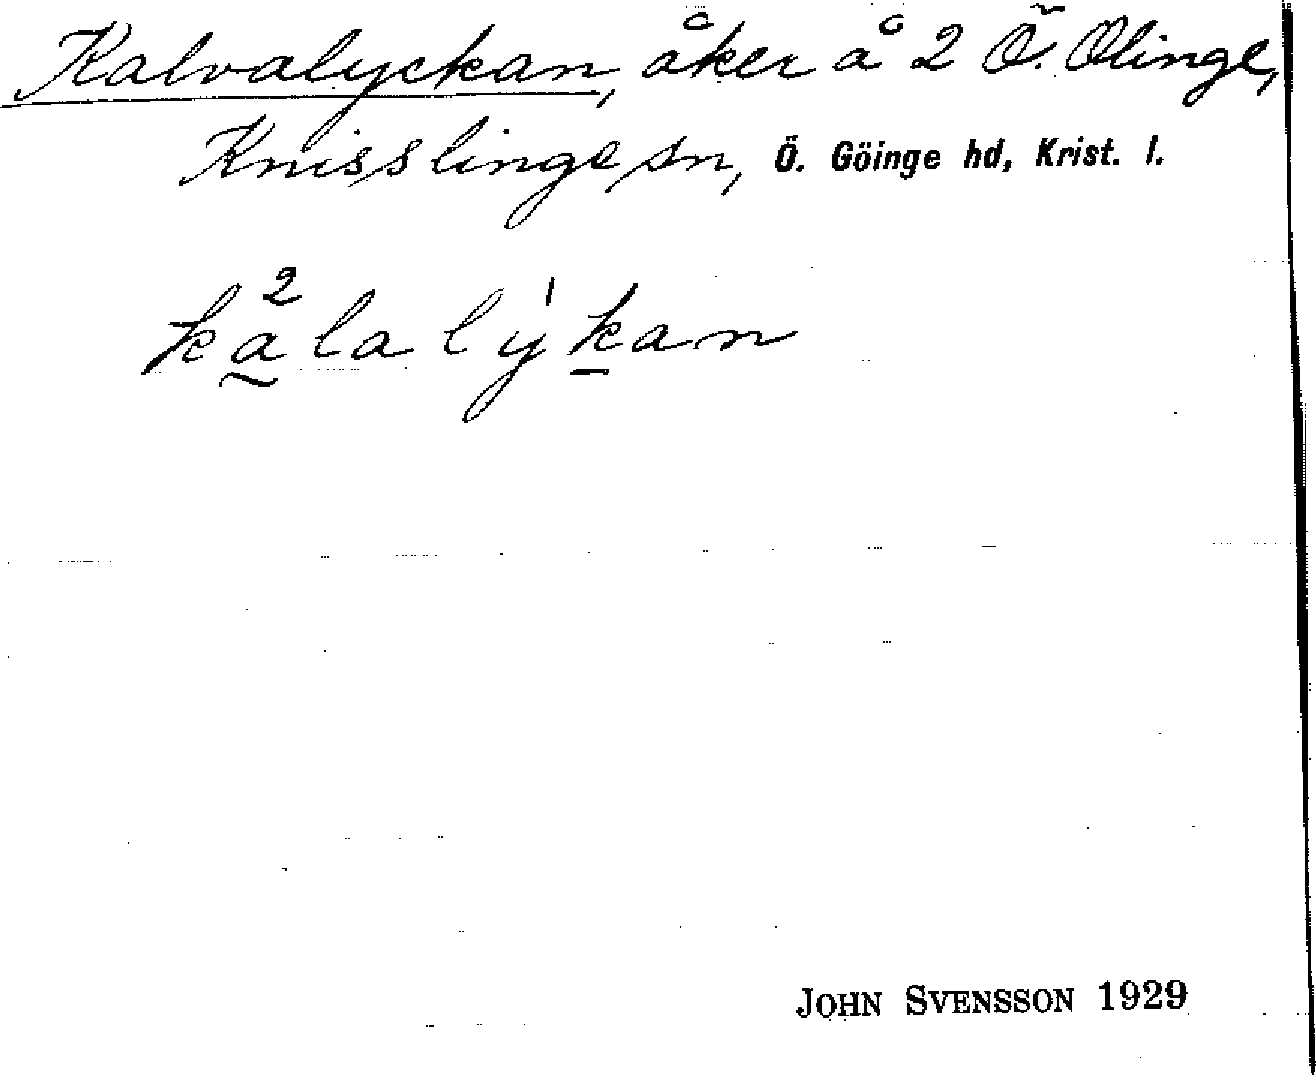 Kalvalyckan, åker å 2 Ö. Olinge,
Knisslinge sn, Ö. Göinge hd, Krist. l.
ka̰²laly̍ḵan
JOHN SVENSSON 1929